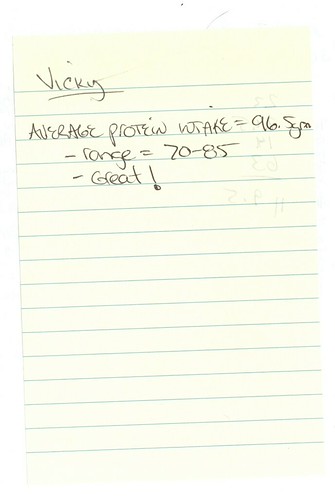 Vicky
AVERAGE PROTEIN INTAKE = 96.5gm
- range = 70-85
- Great!